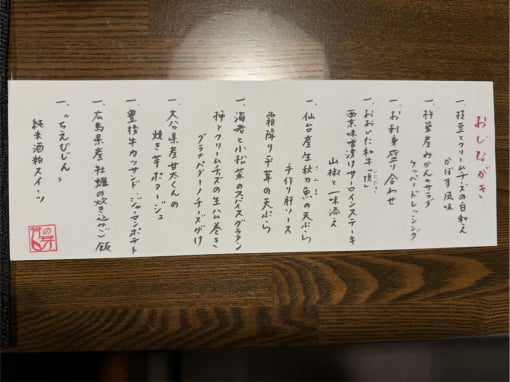 おしながき
一、枝豆とクリームチーズの白和え
かぼす風味
一、杵築産みかんのサラダ
ペッパードレッシング
一、お刺身盛り合わせ
一、おおいた和牛「頂」
西京味噌漬けサーロインステーキ
山椒と一味添え
一、仙台産生秋刀魚の天ぷら
手作り肝ソース
霜降り平茸の天ぷら
一、海老と小松菜のスパイスグラタン
柿とクリームチーズの生ハム巻き
グラナパダーノチーズがけ
一、大分県産甘太くんの
焼き芋ポタージュ
一、豊後牛カツサンド・ジャーマンポテト
一、広島県産牡蠣の炊き込みご飯
一、"ちえびじん"
純米酒粕スイーツ